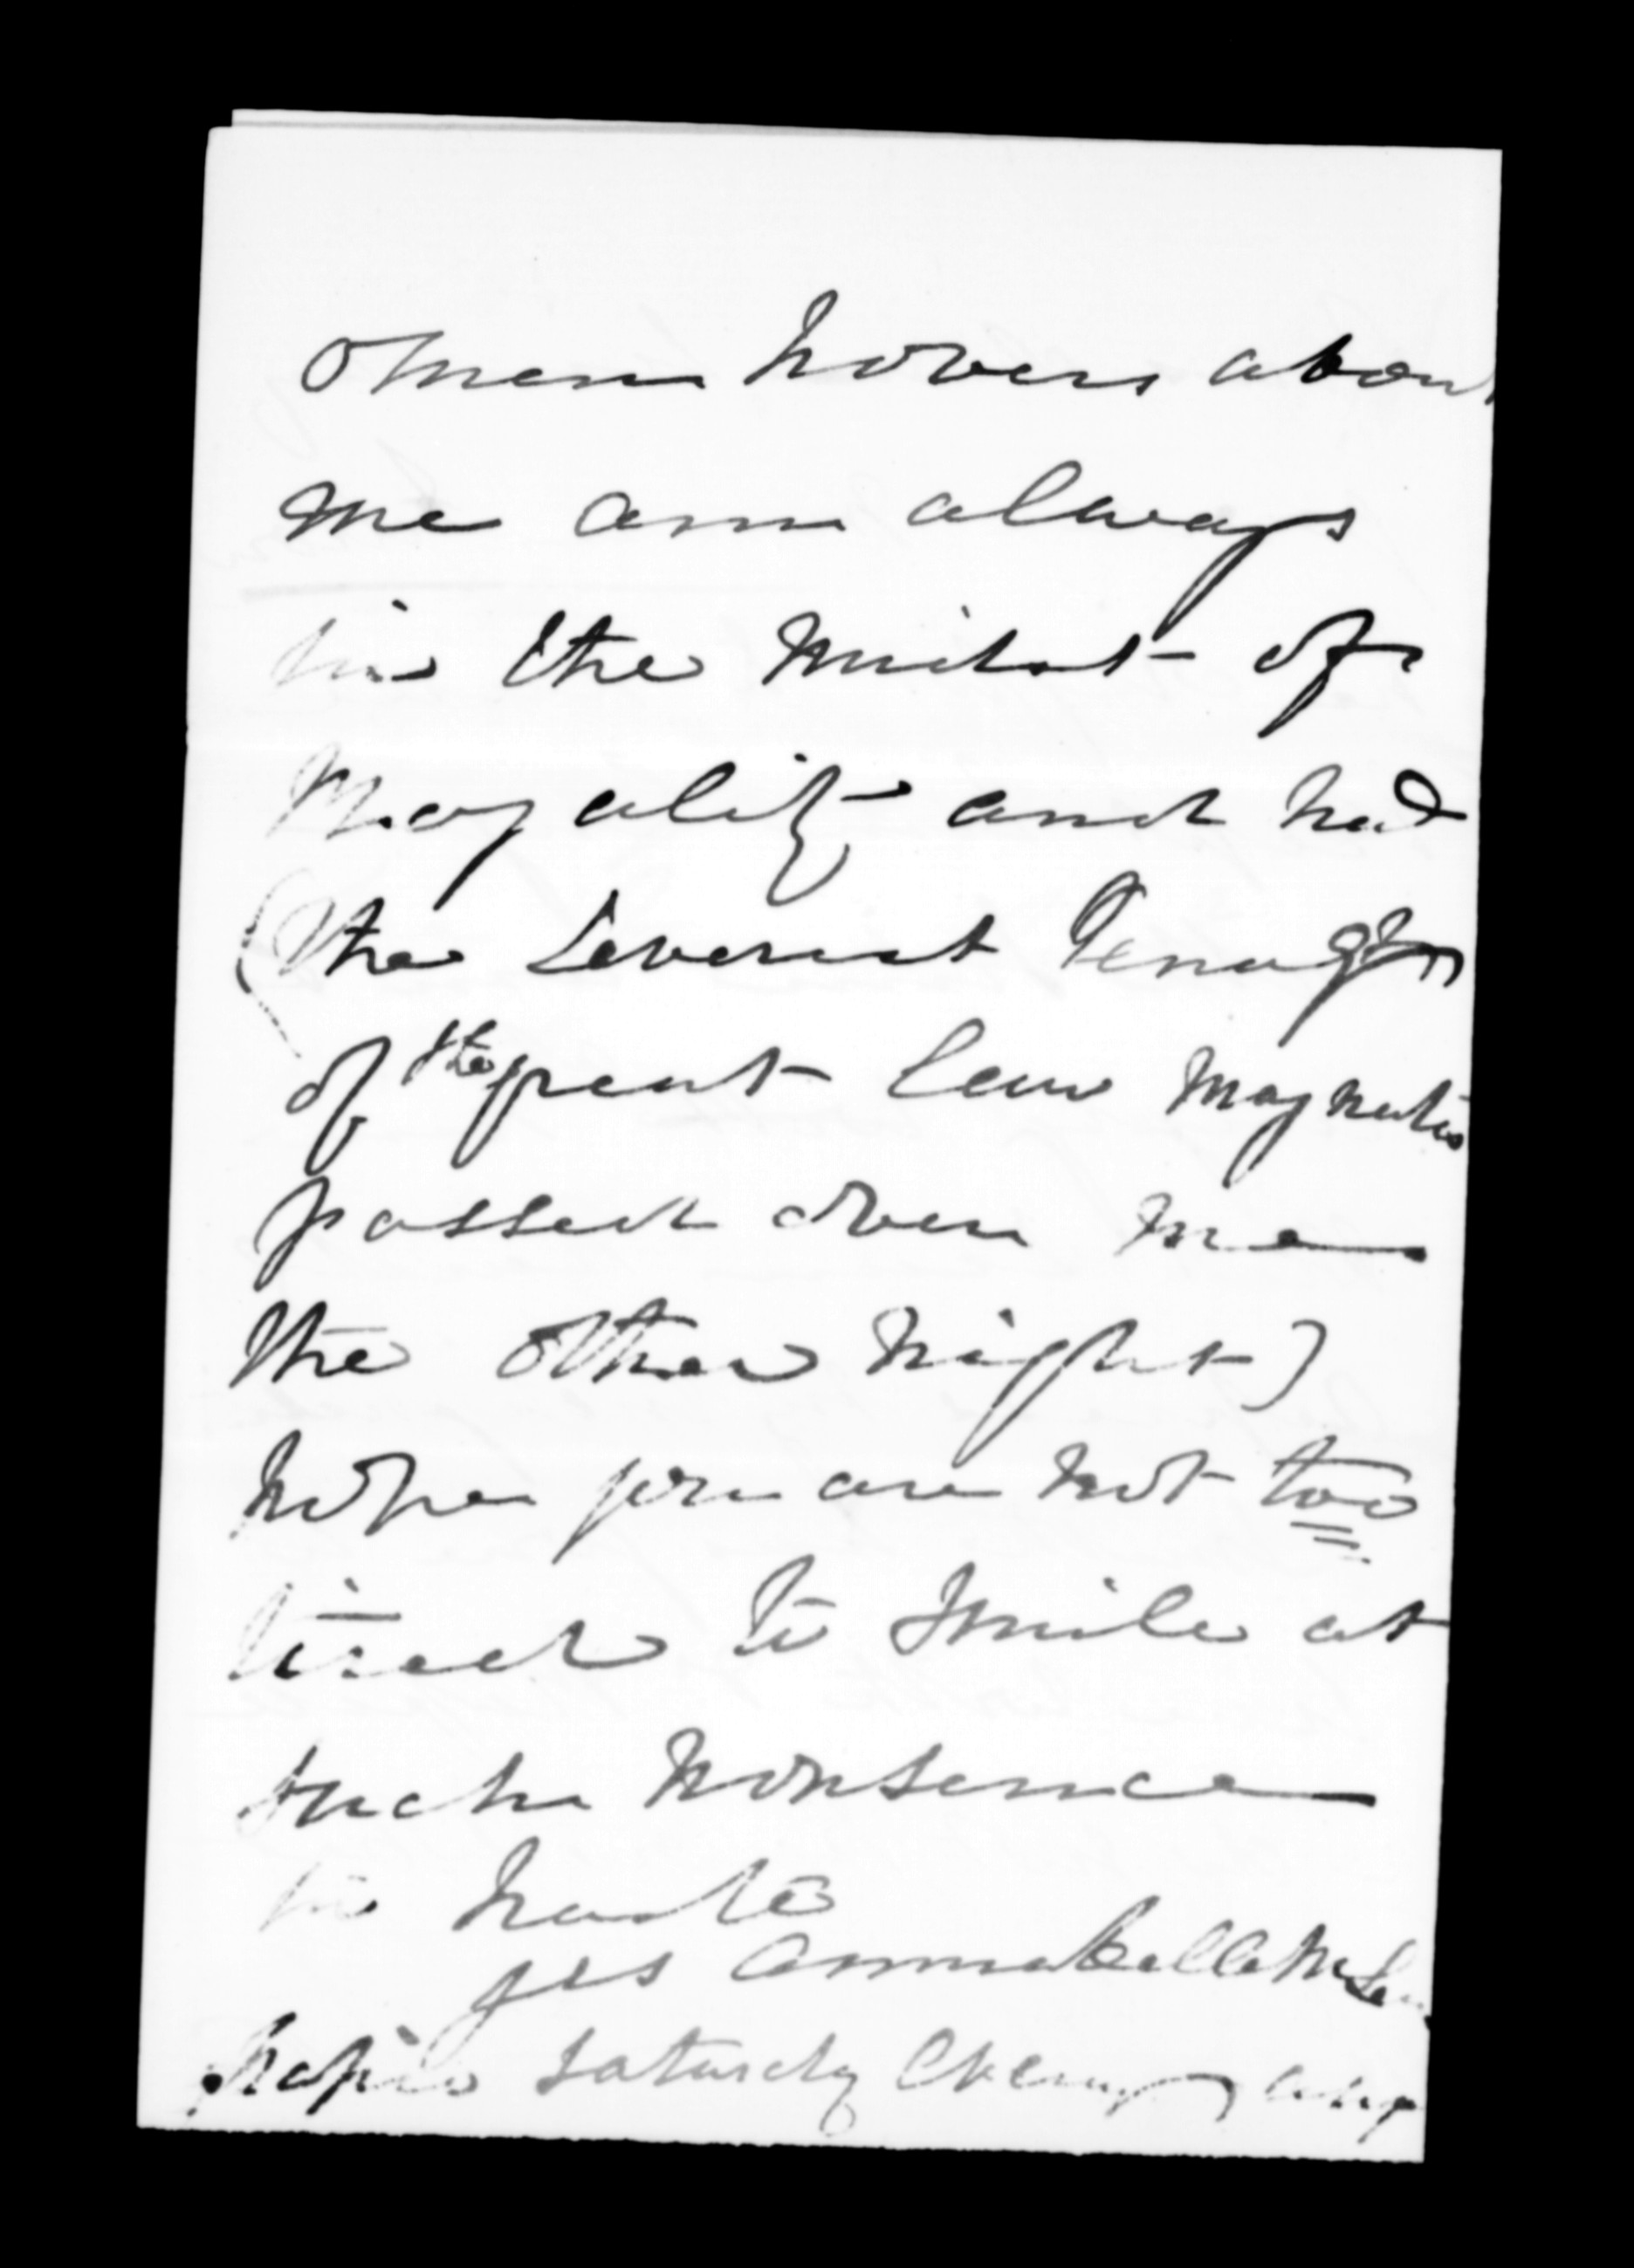 Omen hovers about
me am always
in the midst of
Mayality and had
(the severest Tenughn
of the great law Magnates
passed over me
the other night)
hope you are not too
tired to smile at
such nonsence
in haste
yrs Annabella McLean
Napier Saturdy Evening